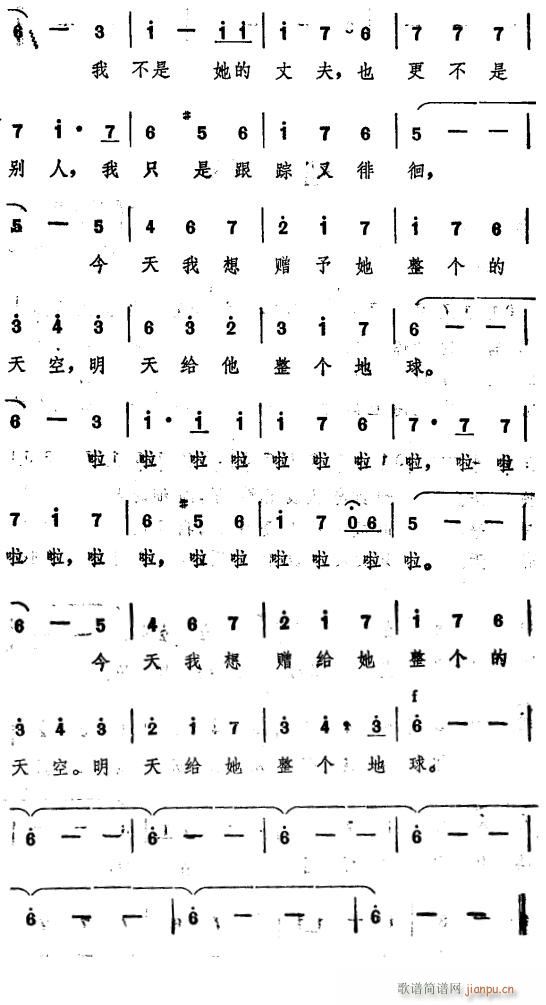 6 — 3 | i — i i | i 7 6 | 7 7 7 |
我 不是 她的 丈夫，也 更不是
7 i· 7 | 6 #5 6 | i 7 6 | 5 — — |
别人，我 只是跟踪又徘徊，
5 — 5 | 4 6 7 | 2 i 7 | i 7 6 |
今 天我想 赠予她 整个的
3 4 3 | 6 3 2 | 3 i 7 | 6 — — |
天空，明 天给他 整个地 球。
6 — 3 | i· i i | i 7 6 | 7· 7 7 |
啦 啦 啦 啦 啦 啦 啦 啦，啦 啦
7 i 7 | 6 #5 6 | i 7 0 6 | 5 — — |
啦 啦，啦 啦，啦 啦 啦 啦 啦 啦。
6 — 5 | 4 6 7 | 2 i 7 | i 7 6 |
今 天我想 赠给她 整个的
f
3 4 3 | 2 i 7 | 3 4· 3 | 6 — — |
天空。明 天给她 整个地 球。
6 — — | 6 — — | 6 — — | 6 — — |
6 — — | 6 — — | 6 — — ‖
歌谱简谱网 jianpu.cn